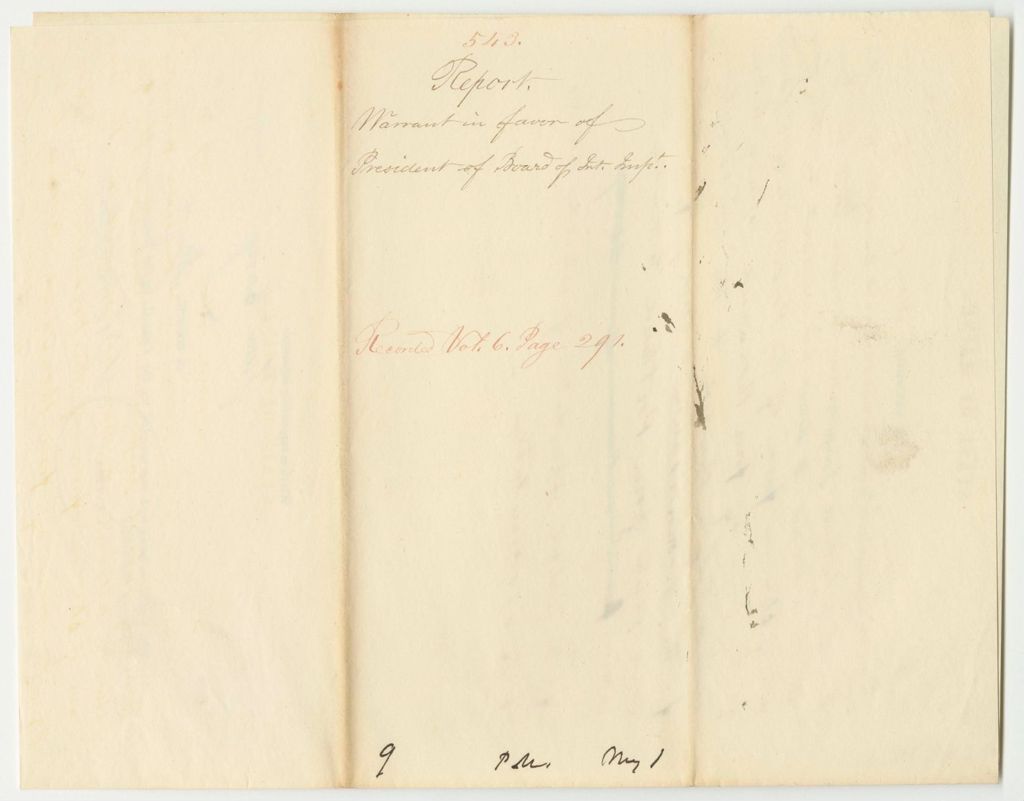 543.
Report.
Warrant in favor of
President of Board of Int. Impt.
Recorded Vol. 6. Page 291.
9